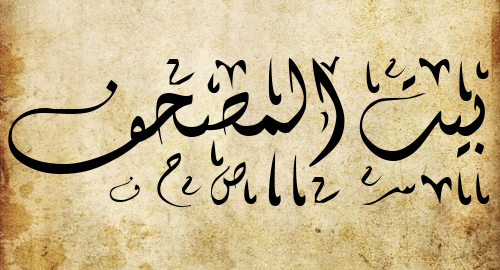 بيت المصحف